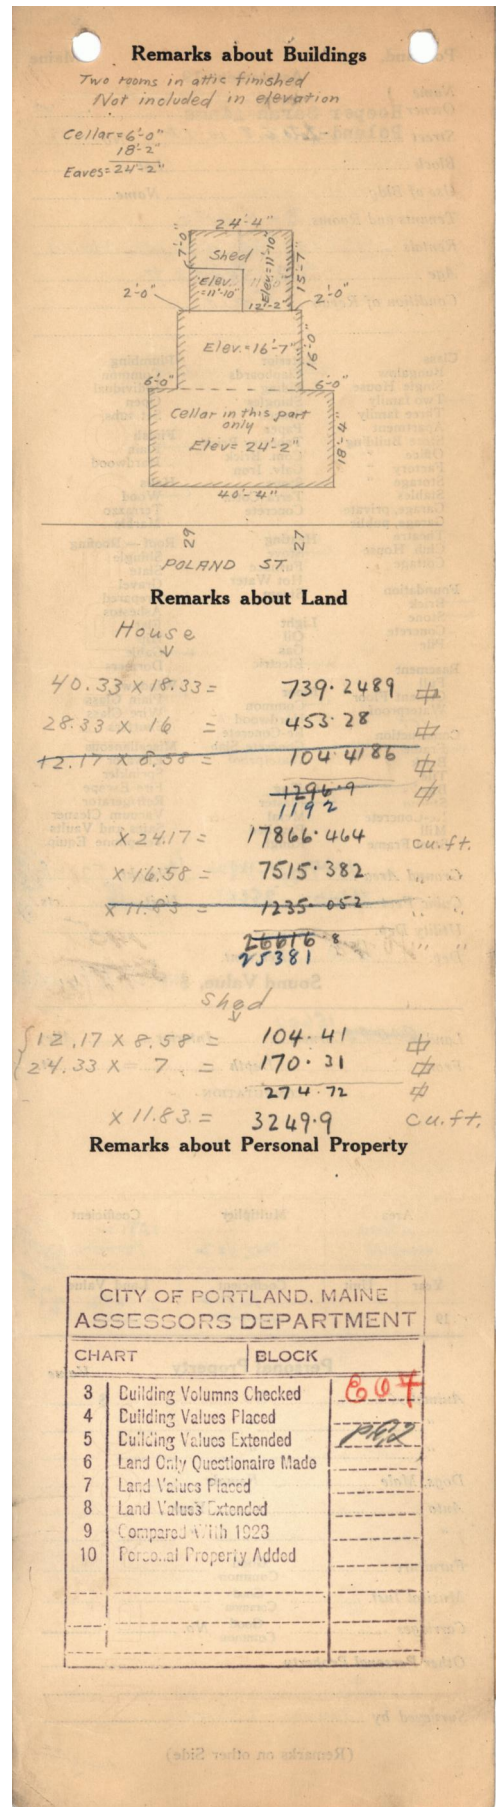 Remarks about Buildings
Two rooms in attic finished
Not included in elevation
Cellar = 6'-0"
18'-2"
Eaves = 24'-2"
24'-4"
7'-0"
Shed
Elev.=11'-10"
15'-7"
Elev.
=11'-10"
12'-2"
2'-0"
2'-0"
Elev.=16'-7"
16'-0"
6'-0"
6'-0"
Cellar in this part
only
Elev= 24'-2"
18'-4"
40'-4"
29
27
POLAND ST.
Remarks about Land
House
40.33 x 18.33 = 739.2489
28.33 x 16 = 453.28
12.17 x 8.58 = 104.4186
1296.9
1192
x 24.17 = 17866.464 cu.ft.
x 16.58 = 7515.382 " "
x 11.83 = 1235.052 " "
26616.8 " "
25381
Shed
12.17 x 8.58 = 104.41
24.33 x 7 = 170.31
274.72
x 11.83 = 3249.9 cu.ft.
Remarks about Personal Property
CITY OF PORTLAND, MAINE
ASSESSORS DEPARTMENT
CHART BLOCK
3 Building Volumns Checked
4 Building Values Placed
5 Building Values Extended
6 Land Only Questionaire Made
7 Land Values Placed
8 Land Values Extended
9 Compared With 1923
10 Personal Property Added